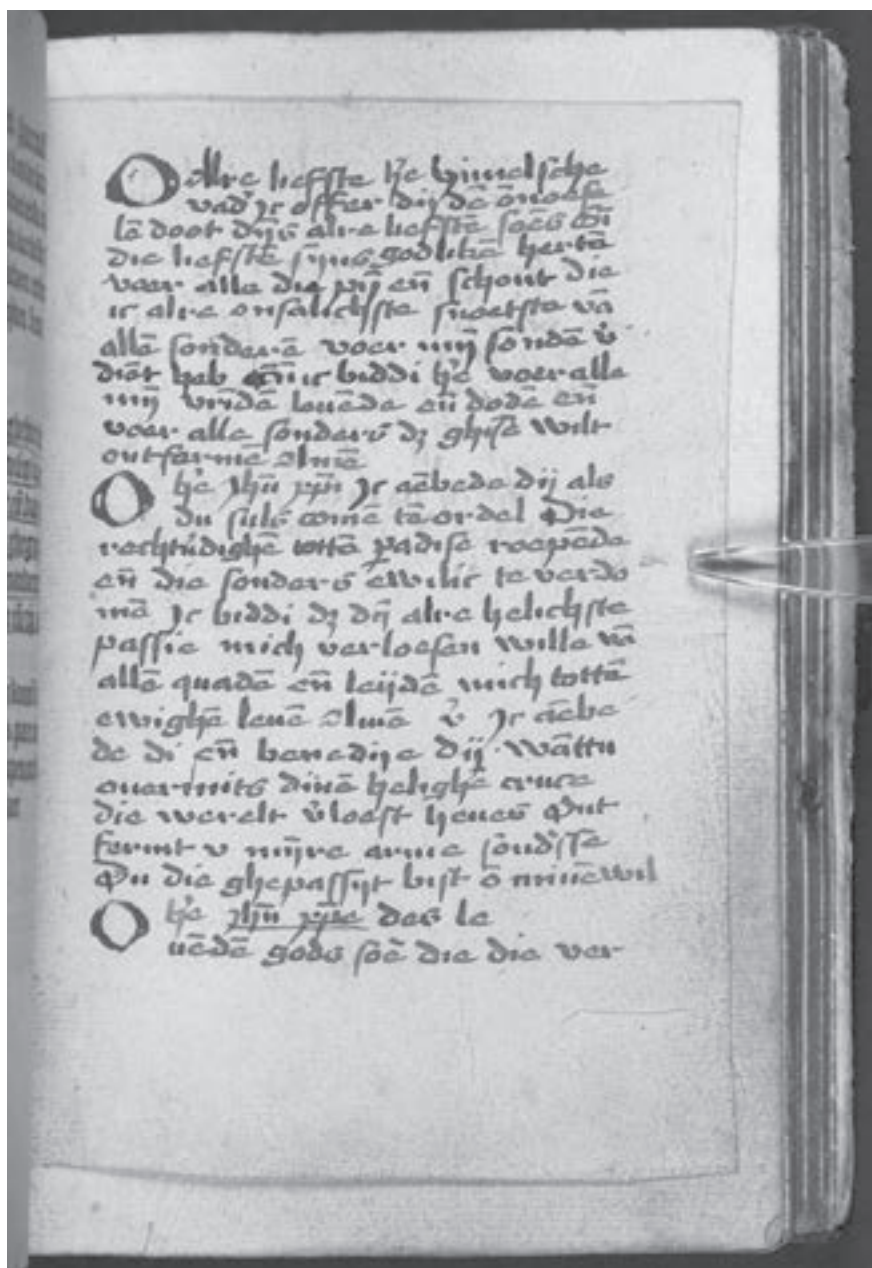 O Alre liefste h'e himelsche
vad' ic offer dij dē ōnoese
lē doot dijs alre liefstē soēs
die liefstē sijns godlikē hertē
voer alle die pijn eñ schout die
ic alre onsalichste snoetste vā
allē sonderē voer mijn sondē v'
diēt heb eñ ic biddi h'e voer alle
mijn vrīdē leuēde eñ dode eñ
voer alle sonders dz ghise wilt
ontfarmē Amē
O h'e ihū xpē Ic aēbede dij als
du suls comē tē ordel Die
rechtu'dighē tottē padise roepēde
eñ die sonders ewilic te verdo
mē Ic biddi dz dijn alre helichste
passie mich verloesen wille vā
allē quadē eñ leijdē mich tottē
ewighē leuē Amē v' Ic aēbe
de di eñ benedije dij wāttu
ouermits dinē helighē cruce
die werelt v'loest heues Ont
fermt v mijre arme sōud'sse
Du die ghepassijt bist ō minē wil
O h'e ihū xpē des le
uēdē gods soē die die ver